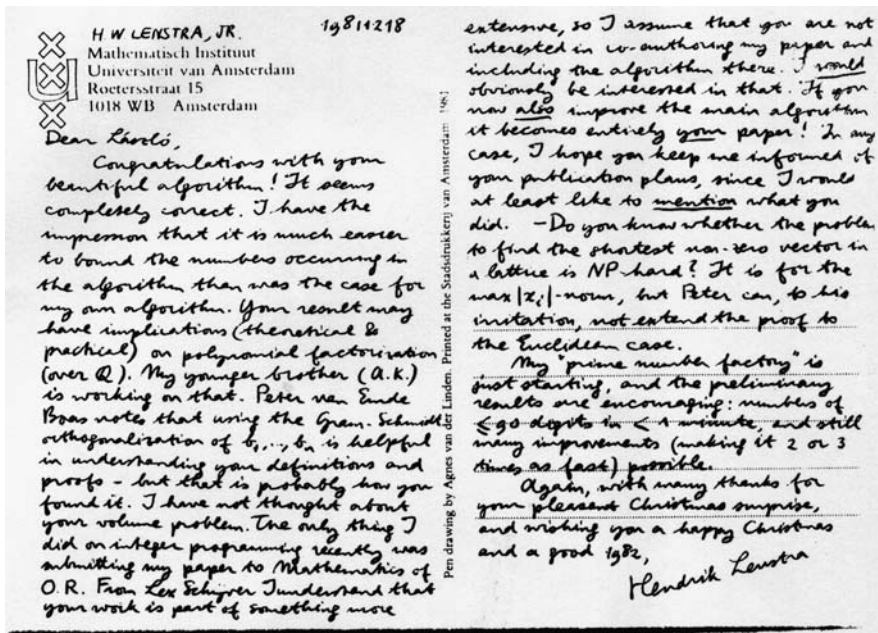 H.W. LENSTRA, JR.
19811218
Mathematisch Instituut
Universiteit van Amsterdam
Roetersstraat 15
1018 WB Amsterdam
Dear László,
Congratulations with your
beautiful algorithm! It seems
completely correct. I have the
impression that it is much easier
to bound the numbers occurring in
the algorithm than was the case for
my own algorithm. Your result may
have implications (theoretical &
practical) on polynomial factorization
(over Q). My younger brother (A.K.)
is working on that. Peter van Emde
Boas notes that using the Gram-Schmidt
orthogonalization of b₁,...,bₙ is helpful
in understanding your definitions and
proofs - but that is probably how you
found it. I have not thought about
your volume problem. The only thing I
did on integer programming recently was
submitting my paper to Mathematics of
O.R. From Lex Schrijver I understand that
your work is part of something more
Pen drawing by Agnes van der Linden. Printed at the Stadsdrukkerij van Amsterdam 1981
extensive, so I assume that you are not
interested in co-authoring my paper and
including the algorithm there. I would
obviously be interested in that. If you
now also improve the main algorithm
it becomes entirely your paper! In any
case, I hope you keep me informed of
your publication plans, since I would
at least like to mention what you
did. - Do you know whether the problem
to find the shortest non-zero vector in
a lattice is NP-hard? It is for the
max|xᵢ|-norm, but Peter can, to his
irritation, not extend the proof to
the Euclidean case.
My "prime number factory" is
just starting, and the preliminary
results are encouraging: numbers of
≤90 digits in < 1 minute, and still
many improvements (making it 2 or 3
times as fast) possible.
Again, with many thanks for
your pleasant Christmas surprise,
and wishing you a happy Christmas
and a good 1982,
Hendrik Lenstra